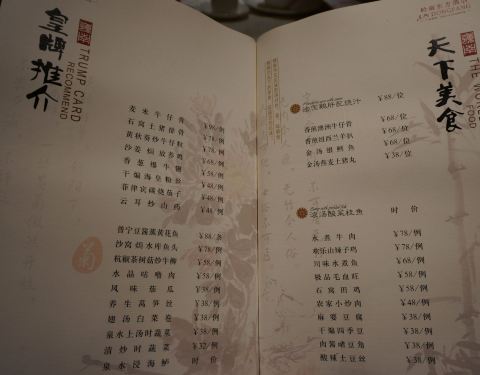 皇牌推介
TRUMP CARD
RECOMMEND
麦米牛仔骨 ¥98/例
石窝土猪排骨 ¥78/例
黄秋葵炒牛仔粒 ¥78/例
沙姜焗放养鸡 ¥68/例
香葱爆牛𦟌 ¥58/例
干煸海皇粉丝 ¥48/例
菲律宾碳烧茄子 ¥48/例
云耳炒山药 ¥48/例
普宁豆酱蒸黄花鱼 ¥88/条
沙窝焗水库鱼头 ¥78/例
杭椒茶树菇炒牛柳 ¥58/例
水晶咕噜肉 ¥58/例
风味茄瓜 ¥38/例
养生莴笋丝 ¥38/例
翅汤白菜卷 ¥38/例
泉水上汤时蔬 ¥38/例
清炒时蔬菜 ¥32/例
泉水浸海鲈 时价
岭南东方酒店
天下美食
THE WORLD
FOOD
¥88/位
香煎澳洲牛仔骨 ¥68/位
香煎纽西兰羊扒 ¥68/位
金汤银鳕鱼 ¥68/位
金汤燕麦土猪丸 ¥38/位
滚汤酸菜桂鱼 时价
水煮牛肉 ¥78/例
欢乐山辣子鸡 ¥68/例
川味水煮鱼 ¥68/例
极品毛血旺 ¥58/例
石窝田鸡 ¥58/例
农家小炒肉 ¥48/例
麻婆豆腐 ¥38/例
干煸四季豆 ¥38/例
肉酱啫豆角 ¥38/例
酸辣土豆丝 ¥38/例